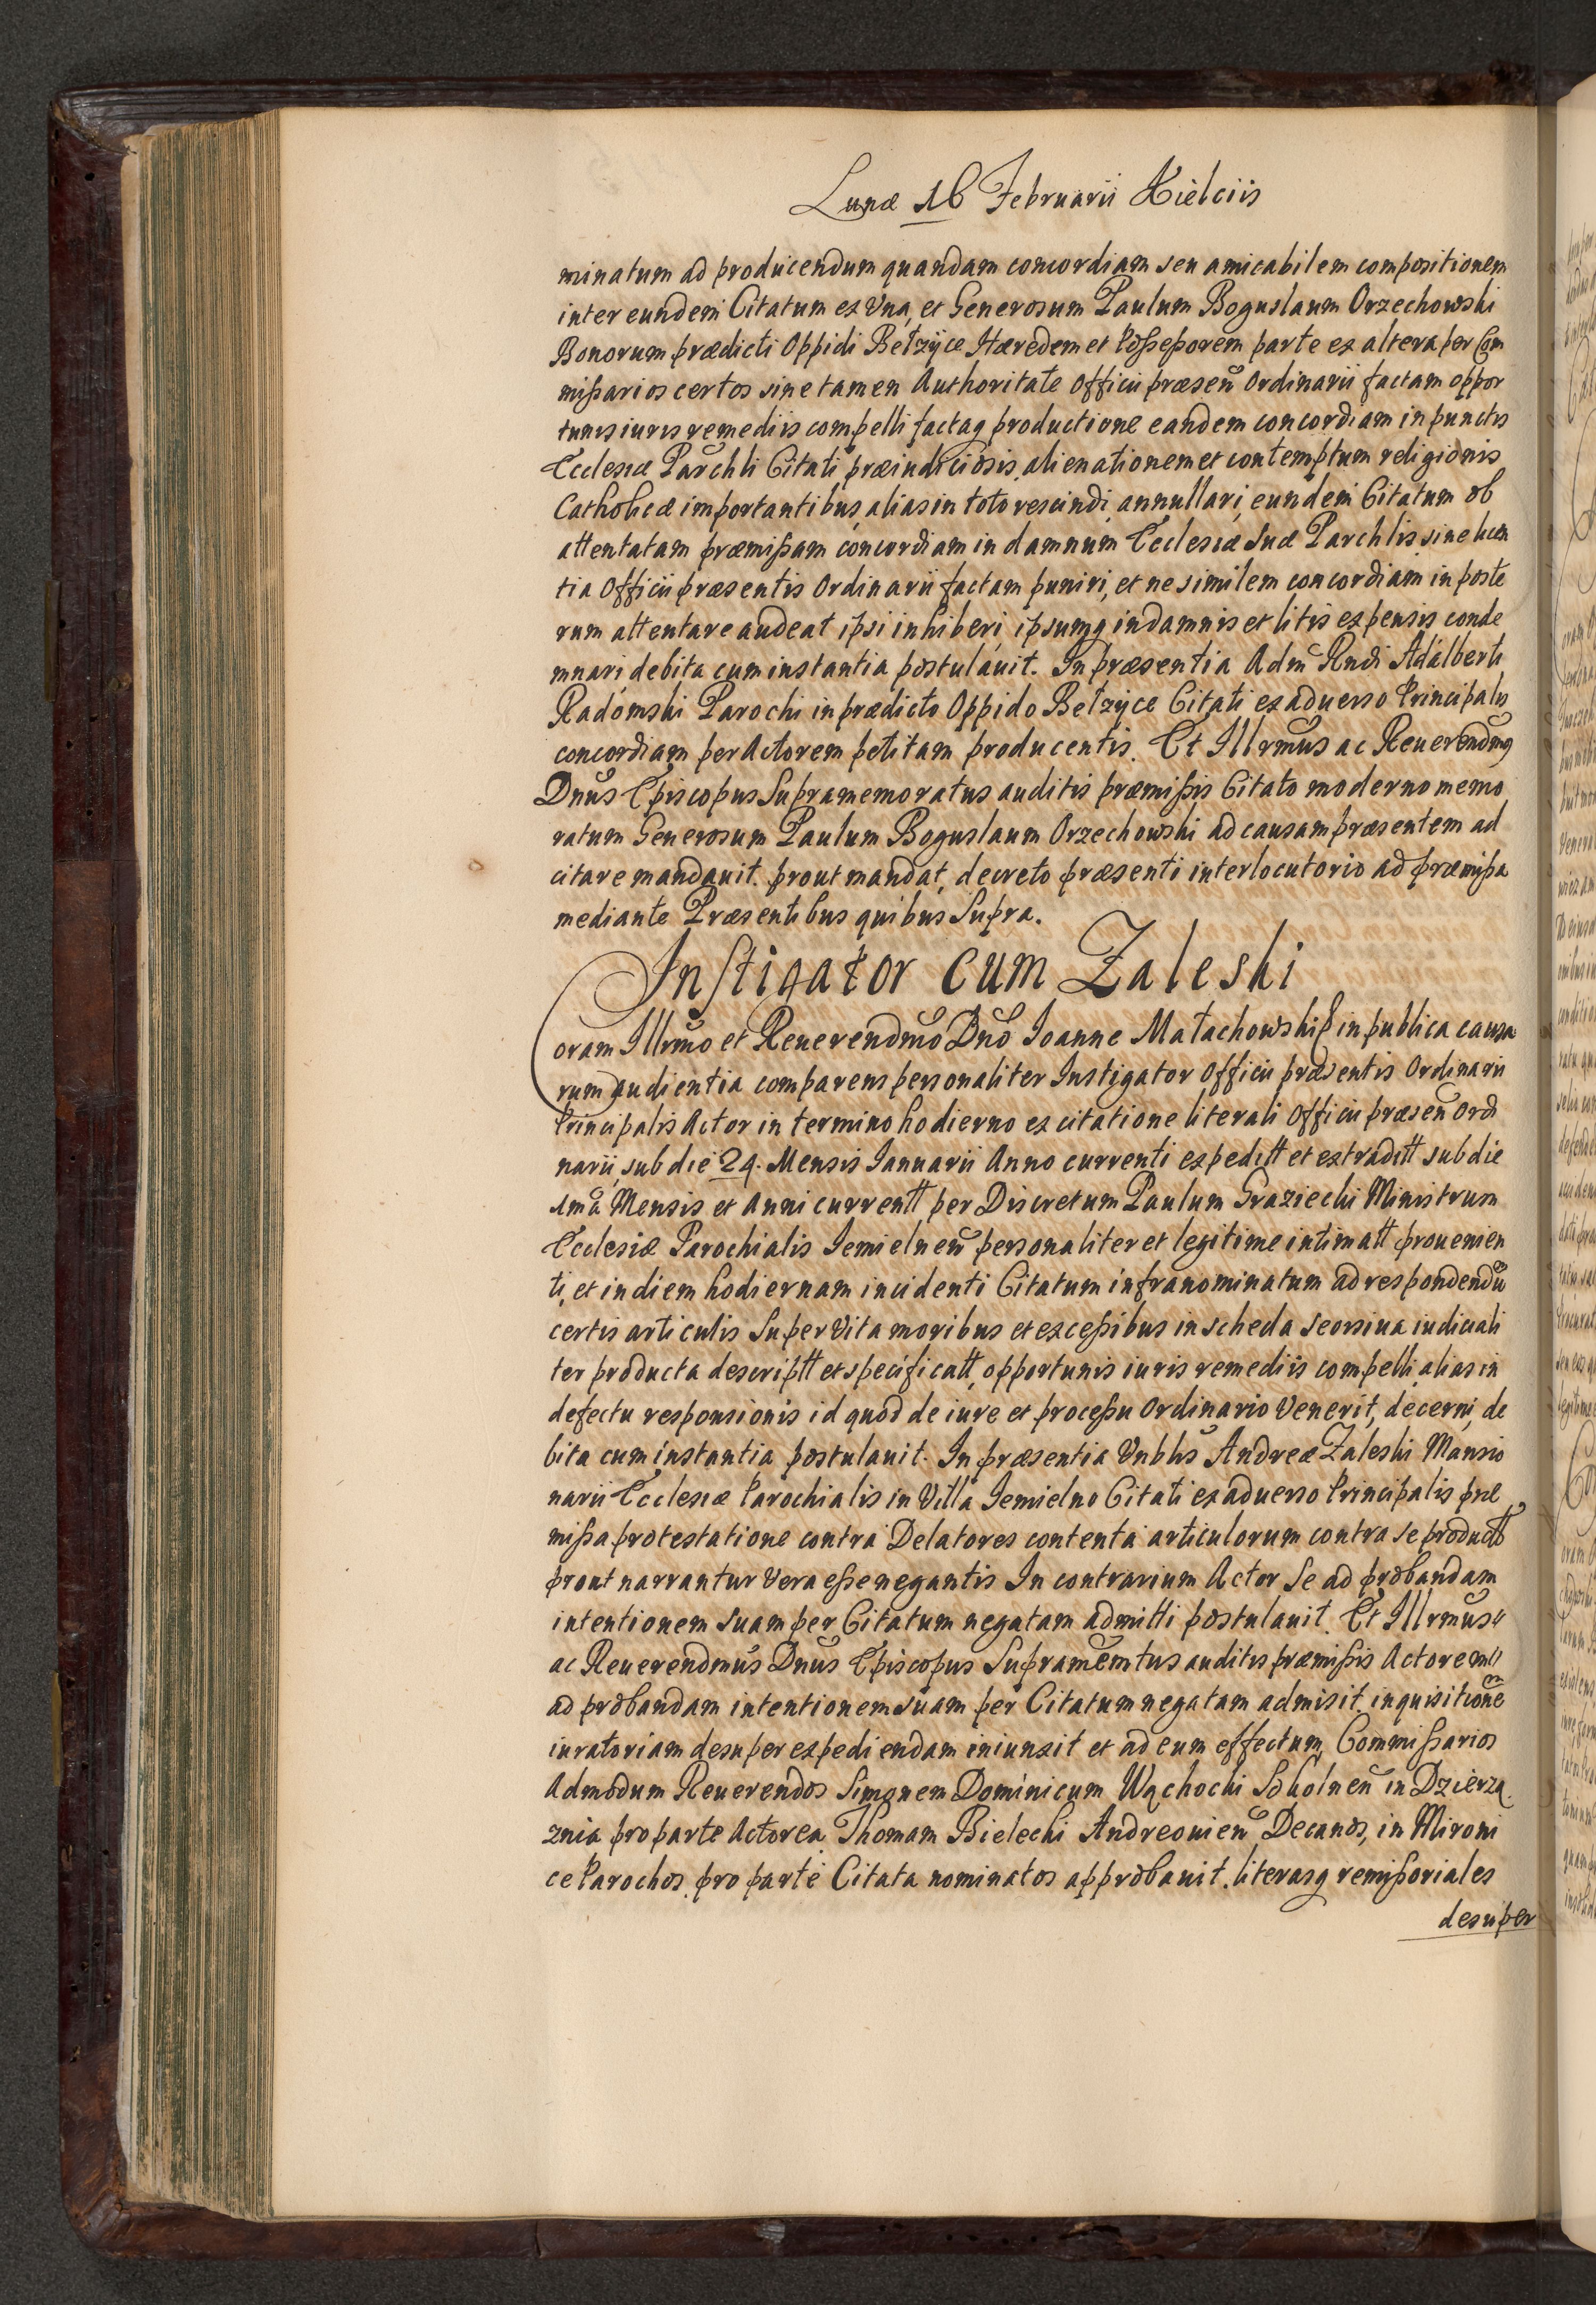 Lunæ 16 Februarii Kielciis
minatum ad producendum quandam concordiam seu amicabilem compositionem
inter eundem Citatum ex Vna, et Generosum Paulum Boguslaum Orzechowski
Bonorum prædicti Oppidi Bełzyce Hæredem et Poßeßorem parte ex altera per Com
mißarios certos sine tamen Authoritate Officii præseñ Ordinarii factam oppor
tunis iuris remediis compelli factaq productione eandem concordiam in punctis
Ecclesiæ Parchli Citati præiudiciosis, alienationem et contemptum religionis
Catholicæ importantibus, alias in toto rescindi, annullari, eundem Citatum ob
attentatam præmißam concordiam in damnum Ecclesiæ Suæ Parchlis, sine licen
tia Officii præsentis Ordinarii factam puniri, et ne similem concordiam in poste
rum attentare audeat ipsi inhiberi, ipsumq in damnis et litis expensis conde
mnari, debita cum instantia postulauit. In præsentia Adm̃ Rndi Adalberti
Radomski Parochi in prædicto Oppido Bełzyce Citati ex aduerso Principalis
concordiam per Actorem petitam producentis. Et Illrmus ac Reuerendmq
Dnus Episcopus Supramemoratus auditis præmißis Citato moderno memo
ratum Generosum Paulum Boguslaum Orzechowski ad causam præsentem ad
citare mandauit. prout mandat, decreto præsenti interlocutorio ad præmißa
mediante Præsentibus quibus Supra.
Instigator cum Zaleski
Coram Illrmo et Reuerendmo Dno Ioanne Małachowski in publica causa
rum audientia comparens personaliter Instigator Officii præsentis Ordinarii
Principalis Actor in termino hodierno ex citatione literali Officii præseñ Ordi
narii, sub die 24. Mensis Ianuarii Anno currenti expeditt et extraditt sub die
1ma Mensis et Anni currentt per Discretum Paulum Graziecki Ministrum
Ecclesiæ Parochialis Iemielneñ personaliter et legitime intimatt prouenien
ti, et in diem hodiernam incidenti Citatum infranominatum ad respondendũ
certis articulis Super Vita moribus et exceßibus in scheda seorsiua iudiciali
ter producta descriptt et specificatt, opportunis iuris remediis compelli, alias in
defectu responsionis id quod de iure et proceßu Ordinario Venerit, decerni, de
bita cum instantia postulauit. In præsentia Vnblis Andreæ Zaleski Mansio
narii Ecclesiæ Parochialis in Villa Iemielno Citati ex aduerso Principalis præ
mißa protestatione contra Delatores contenta articulorum contra se productt
prout narrantur Vera eße negantis In contrarium Actor Se ad probandam
intentionem suam per Citatum negatam admitti postulauit. Et Illrmus
ac Reuerendmus Dnus Episcopus Supramemtus auditis præmißis Actorem
ad probandam intentionem suam per Citatum negatam admisit, inquisitionẽ
iuratoriam desuper expediendam iniunxit et ad eum effectum Commißarios
Admodum Reuerendos Simonem Dominicum Wąchocki Skolneñ in Dzierzą
znia pro parte Actorea, Thomam Bielecki Andreouieñ Decanos, in Mironi
ce Parochos pro parte Citata nominatos approbauit. literasq remißoriales
desuper